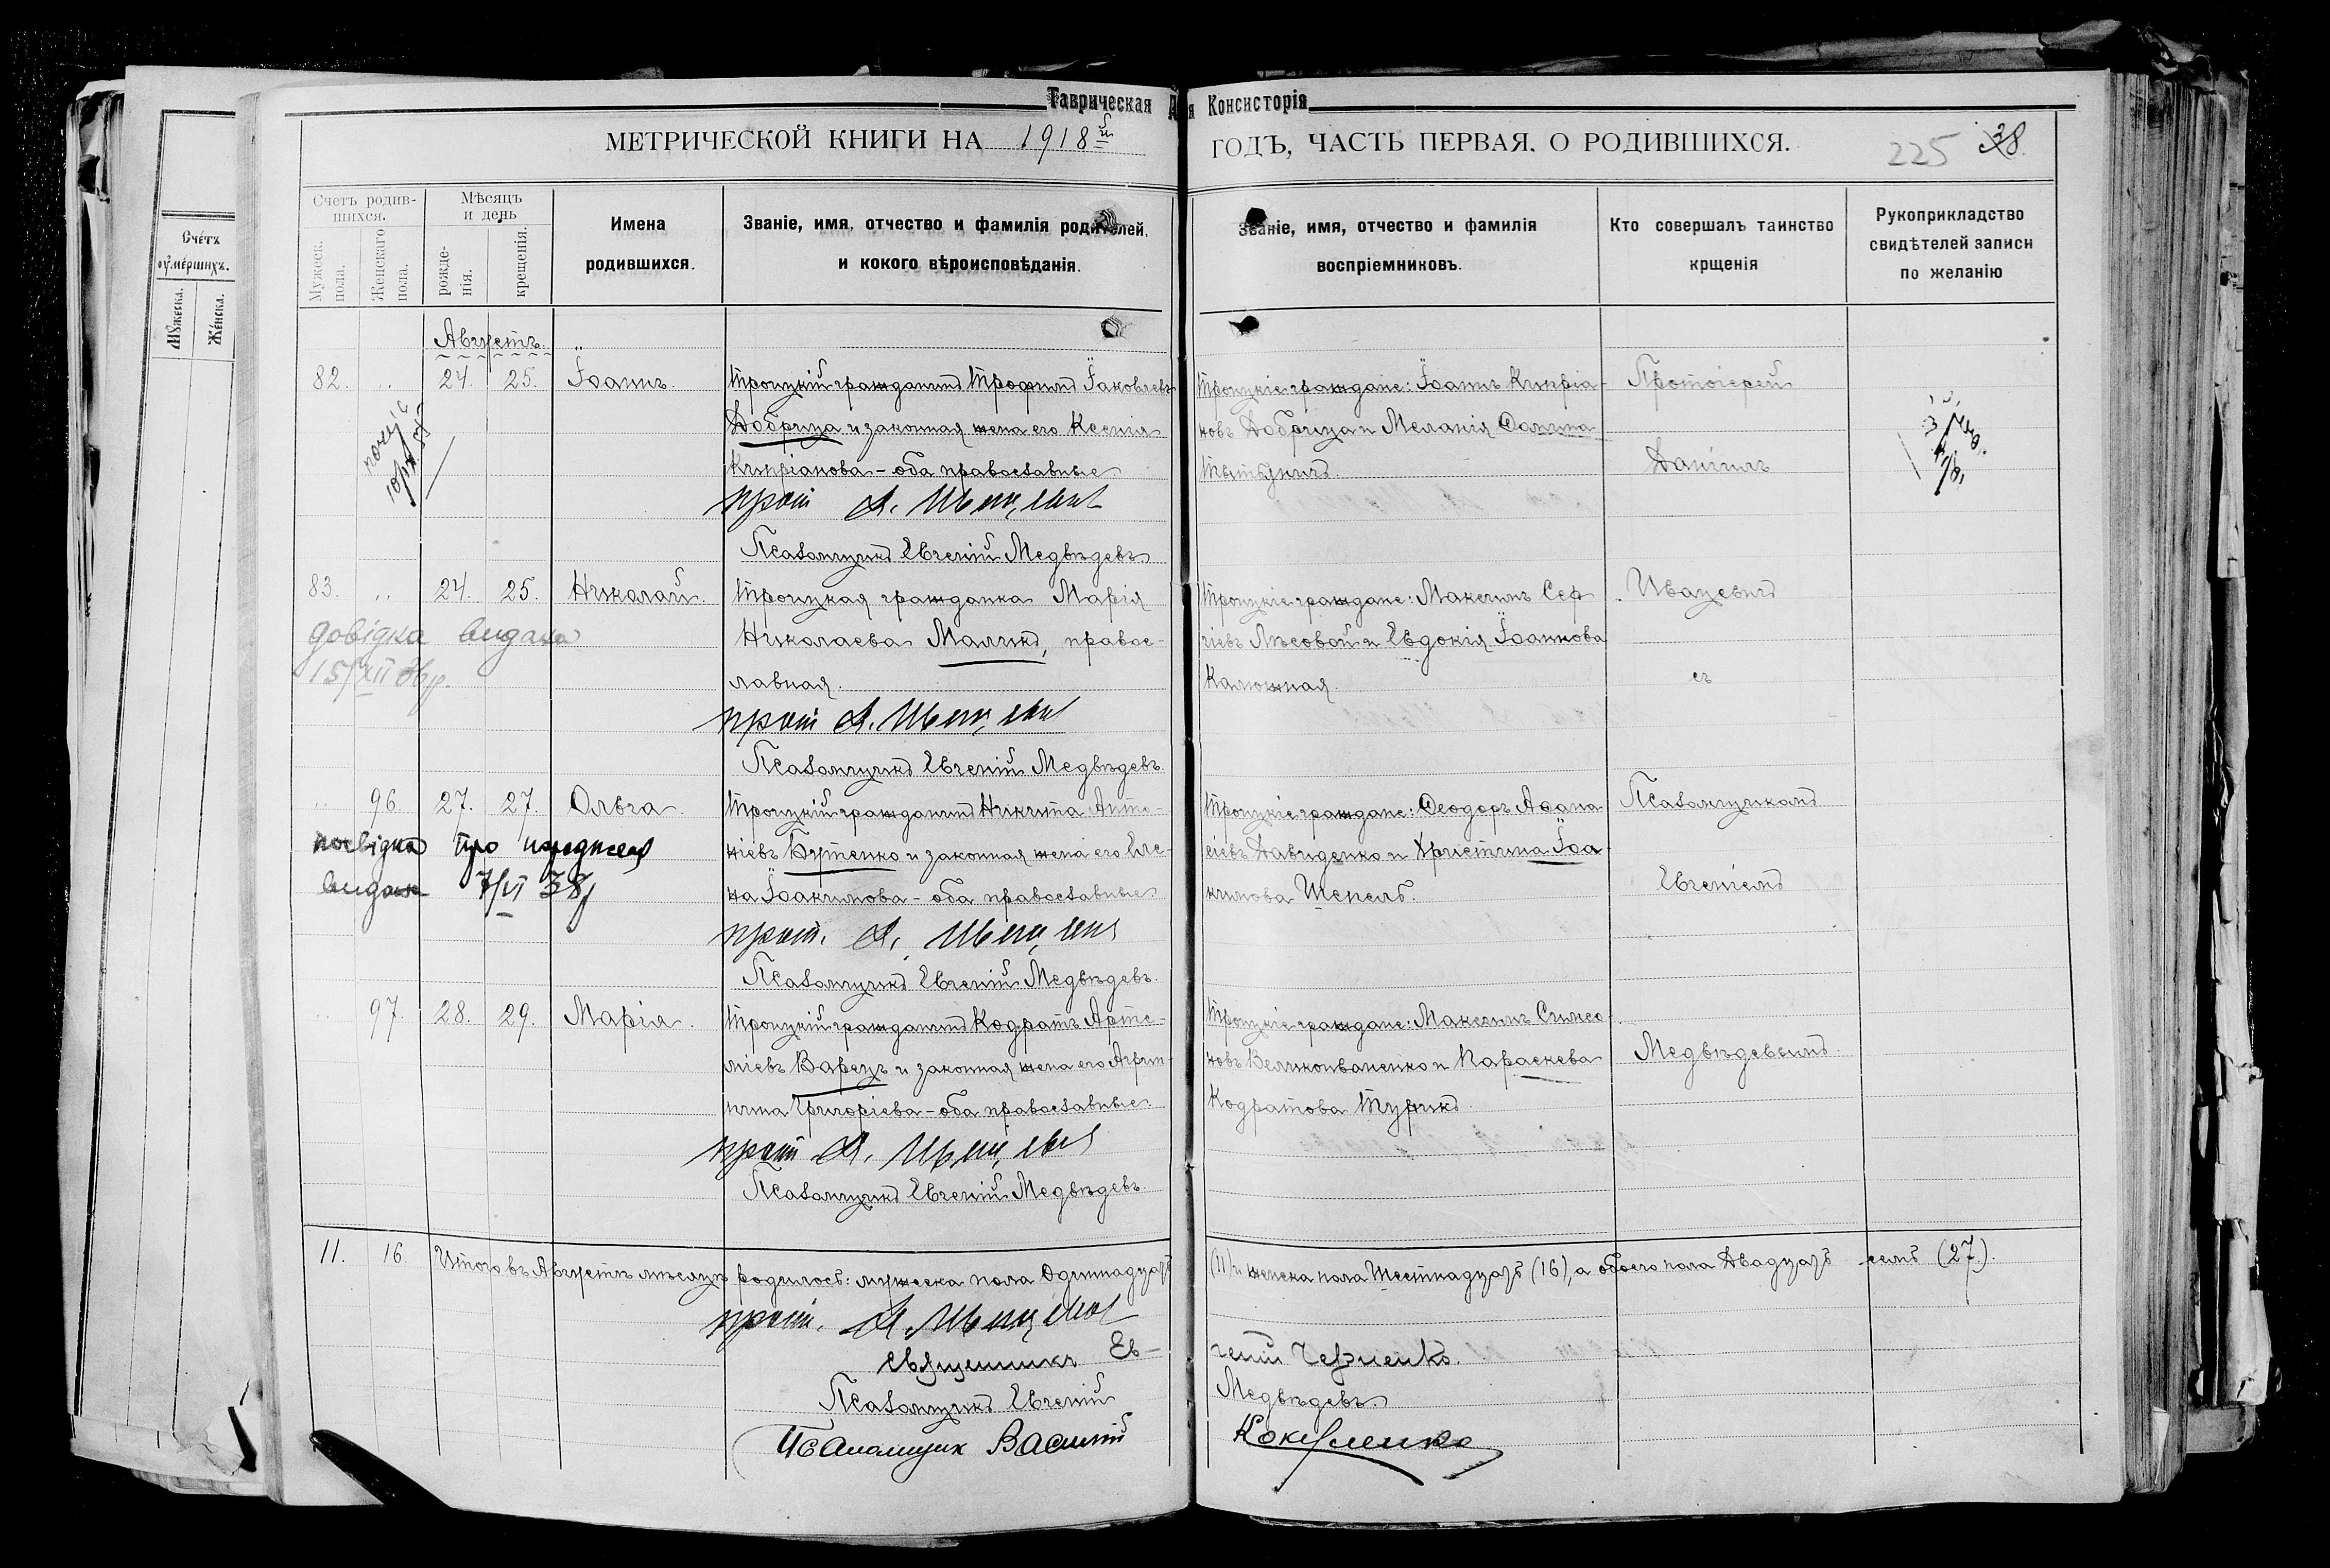 Таврическая Д
я Консисторія
МЕТРИЧЕСКОЙ КНИГИ НА 1918й
ГОДЪ, ЧАСТЬ ПЕРВАЯ, О РОДИВШИХСЯ.
225 38.
Счетъ родив-
шихся.
Мужеск. пола.
Женскаго пола.
Мѣсяцъ
и день
рожде-
нія.
крещенія.
Имена
родившихся.
Званіе, имя, отчество и фамилія родителей,
и кокого вѣроисповѣданія.
Званіе, имя, отчество и фамилія
воспріемниковъ.
Кто совершалъ таинство
крщенія
Рукоприкладство
свидѣтелей записи
по желанію
Счéтъ
оумéршихъ.
Мꙋжеска.
Жéнска.
Августъ.
82. „ 24. 25. Іоаннъ.
Троицкій гражданинъ Трофимъ Іаковлевъ
Добрица и законная жена его Ксенія
Кипріанова – оба православные
прот А.
Псаломщикъ Евгеній Медвѣдевъ
Троицкіе граждане: Іоаннъ Кипріа-
новъ Добрица и Меланія
Протоіерей
Даніилъ
83. „ 24. 25. Николай.
довідка видана
15/XII
Троицкая гражданка Марія
Николаева Маликъ, правос-
лавная.
прот А.
Псаломщикъ Евгеній Медвѣдевъ.
Троицкіе граждане: Максимъ Сер
гіевъ Лѣсовой и Евдокія Іоаннова
Калюжная.
Ивацевичъ
съ
„ 96. 27. 27. Ольга.
посвідка про народження
видана 7/VI 38р
Троицкій гражданинъ Никита Анто-
ніевъ Бутенко и законная жена его Еле-
на Іоакимова – оба православные
прот. А.
Псаломщикъ Евгеній Медвѣдевъ.
Троицкіе граждане: Ѳеодоръ Аѳана
сіевъ Давиденко и Христина Іоа-
кимова Шепель.
Псаломщикомъ
Евгеніемъ
„ 97. 28. 29. Марія.
Троицкій гражданинъ Кодратъ Арте-
міевъ Варецъ и законная жена его Агрип-
пина Григоріева – оба православные.
прот А.
Псаломщикъ Евгеній Медвѣдевъ.
Троицкіе граждане: Максимъ Симео-
новъ Великоиваненко и Параскева
Кодратова Турикъ.
Медвѣдевымъ.
11. 16. Итого въ Августѣ мѣсяцѣ родилось: мужеска пола Одиннадцать
(11) и женска пола Шестнадцать (16), а обоего пола Двадцать семь (27).
прот. А.
Священникъ Ев-
геній Черненко.
Псаломщикъ Евгеній
Медвѣдевъ
Псаломщик Василий
Кокуленко